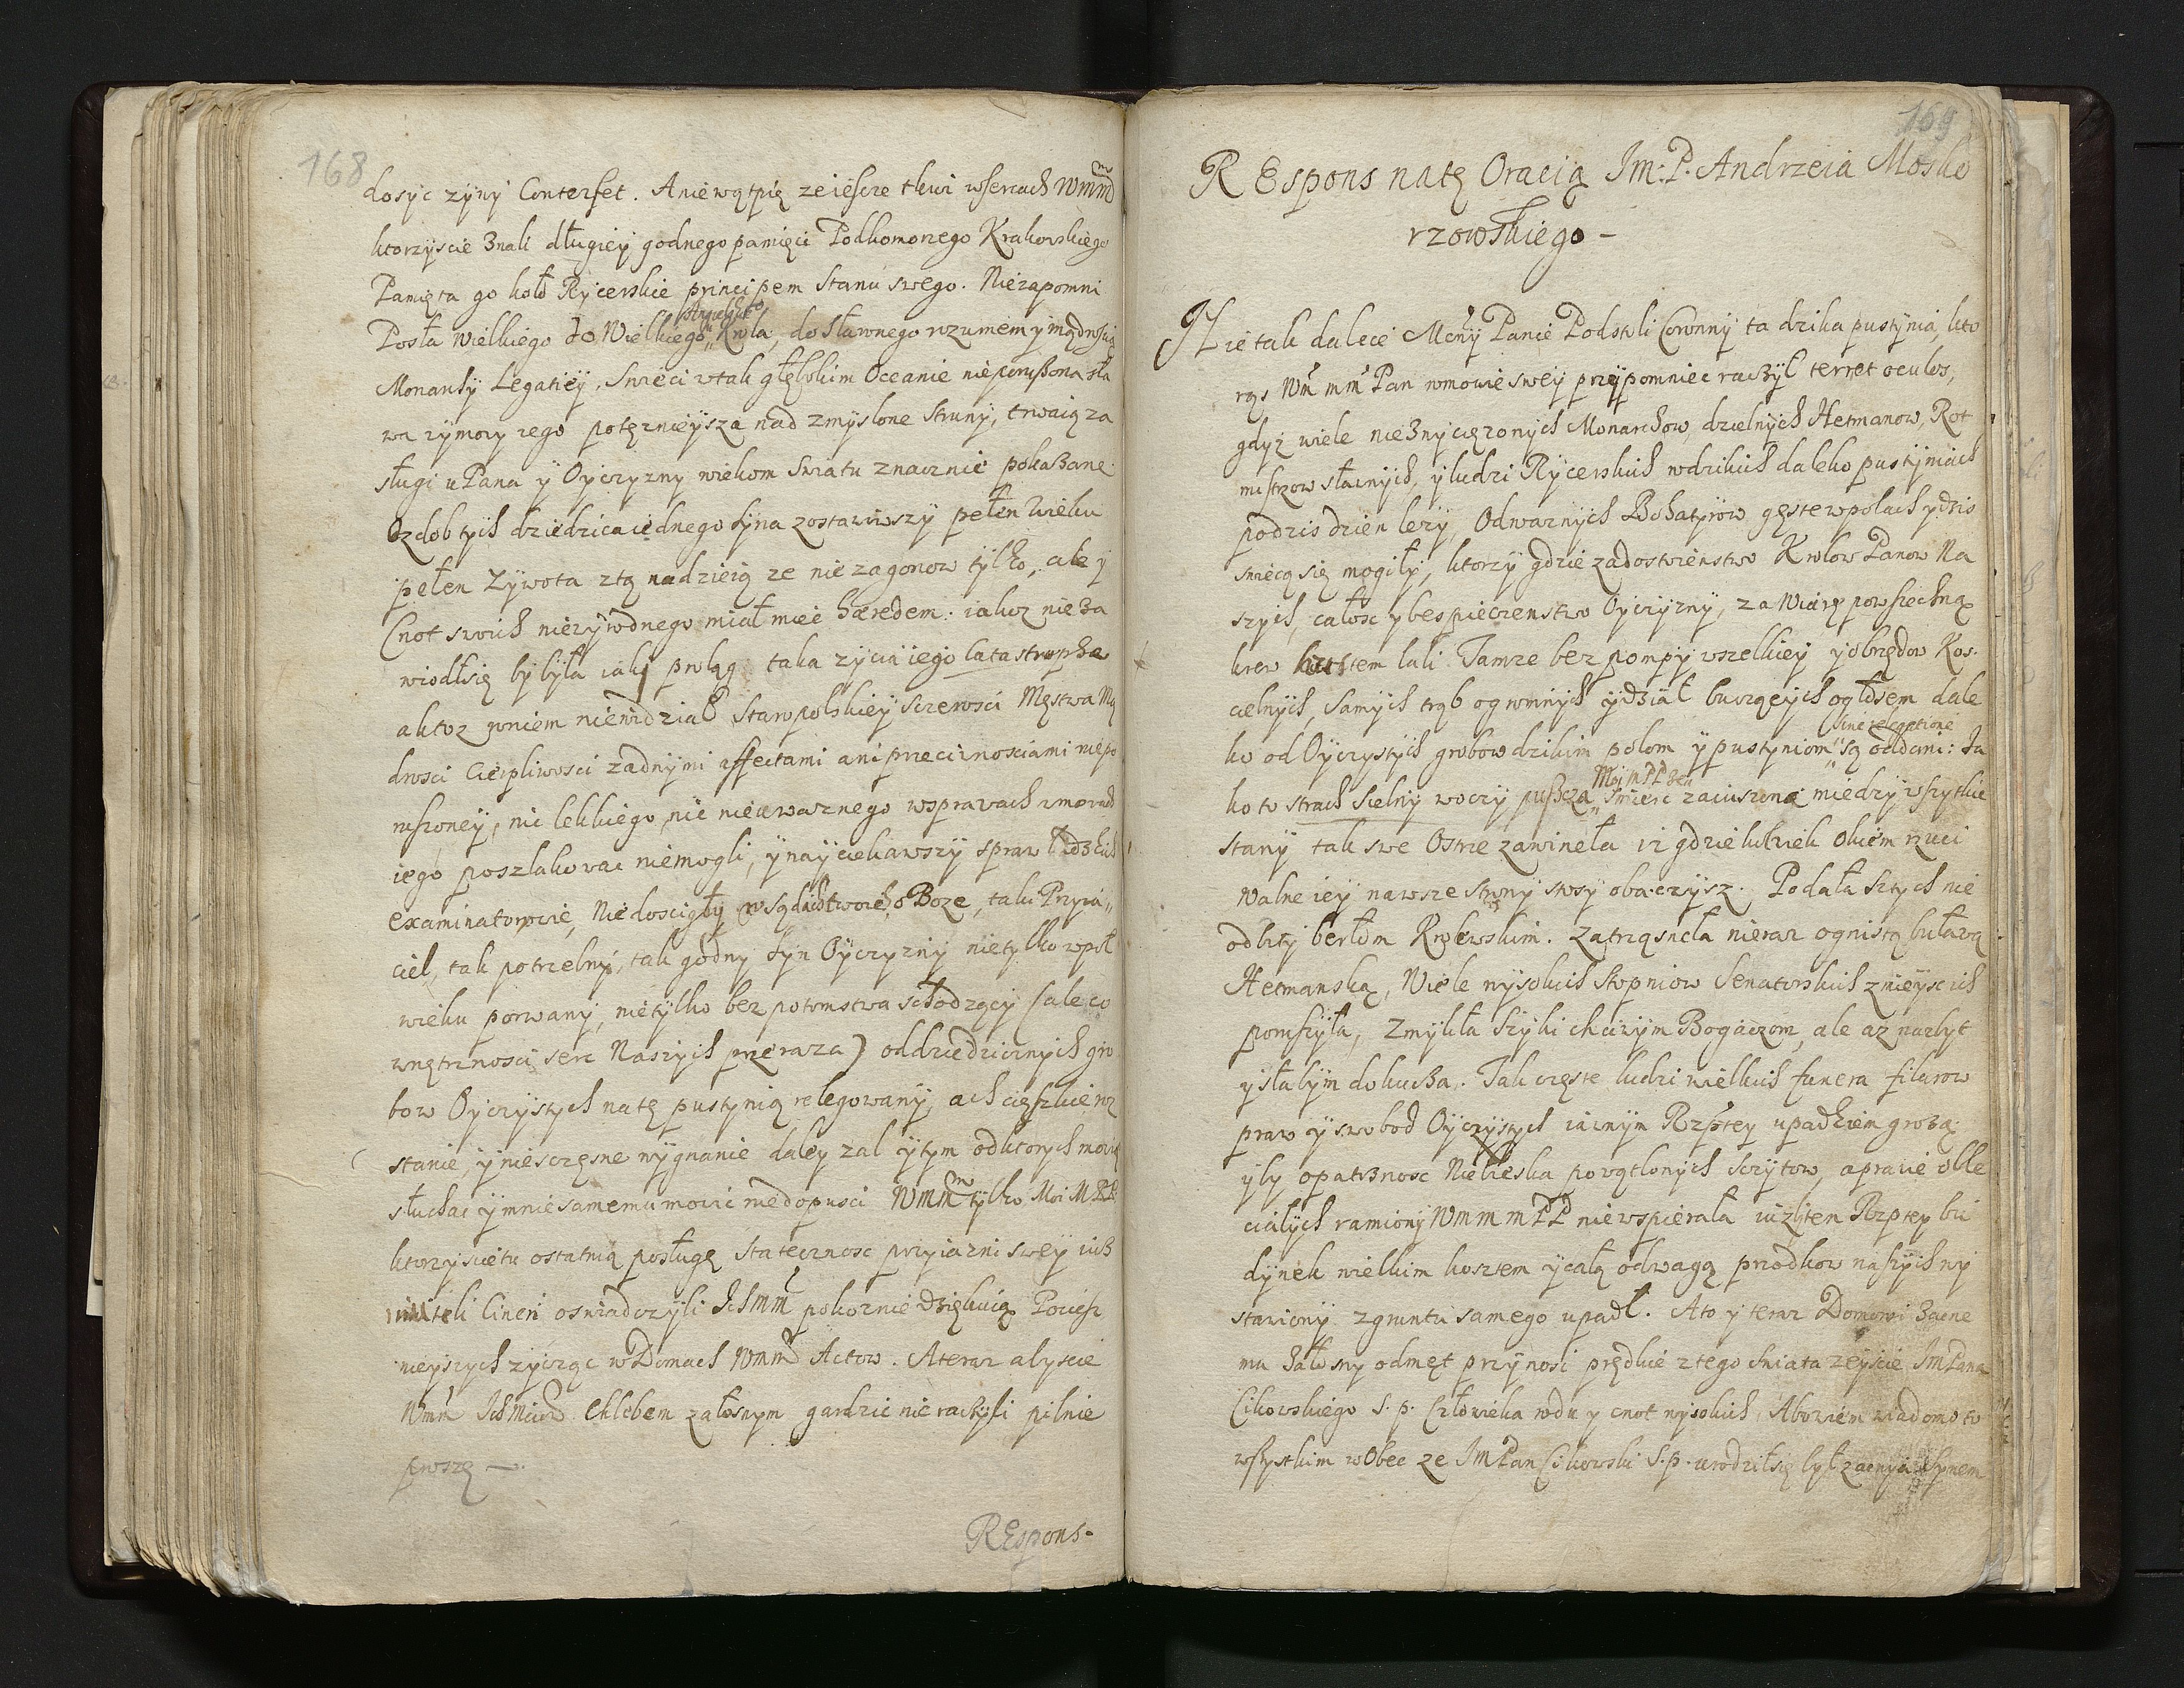 168
dosyc zyny Conterfet. A niewątpię ze iescze tkwi w sercach Wmmd
ktorzyscie Znali długiey godnego pamięci Podkomorzego Krakowskiego
Pamięta go koło Rycerskie principem Stanu swego. Niezapomni
Posła Wielkiego do Wielkiego Angielskiego Krola, do sławnego rozumem y mądrością
Monarchy Legatiey, Swieci w tak głębokim Oceanie nieporuszona sła
wa rymowy iego potęznieysza nad zmyslone Struny, trwaią za
sługi u Pana y Oyczyzny wiekom Swiatu znacznie pokazane.
Ozdob tych dziedzica iednego syna zostawiwszy pełen Wieku
pełen Zywota z tą nadzieią ze nie zagonow tylko, ale y
Cnot swoich niezywodnego miał miec hæredem: iakoz nie za
wiodł się by była iako prolog taka zycia iego catastropha
a ktoz w niem niewidział Staropolskiey Sczerosci Męstwa Mą
drosci Cierpliwosci zadnymi affectami ani przeciwnosciami niepo
ruszoney, nic lekkiego, nic nieuwaznego w sprawach
iego poszlakowac niemogli, y nayciekawszy spraw Ludzkich
examinatorowie, Niedoscigły w sądach twoich o Boze, taki Przyia„
ciel, tak potrzebny, tak godny syn Oyczyzny nietylko w poł
wieku porwany, nietylko bez potomstwa schodzący (ale co
wnętrznosci serc Naszych przeraza) od dziedzicznych gro
bow Oyczystych na tę pustynią relegowany, ach cięszkie roz
stanie, y niesczęsne wygnanie daley zal y tym od ktorych mowię
słuchac y mnie samemu mowic niedopusci Wmm tylko Moi M PP
ktorzyscie tu ostatnią posługę Statecznosc przyiazni swey iusz
cineri oswiadczyli IchMM pokornie dziękuią Pociesz
nieyszych zycząc w Domach Wmm Actow. A teraz abyscie
Wmm chlebem załosnym gardzic nie raczyli pilnie
proszę —.
REspons-
169
REspons na tę Oracią Im: P. Andrzeia Mosko
rzowskiego –
Nie tak dalece Mcwy Panie Podstoli Coronny ta dzika pustynia, kto
rąs Wm mm Pan w mowie swey przypomniec raczył terret oculos,
gdyz wiele niezwycięzonych Monarchow, dzielnych Hetmanow, Rot
mistrzow sławnych, y ludzi Rycerskich w dzikich daleko pustyniach
podzis dzien lezy, Odwaznych Bohatyrow gęste w polach y dzis
swiecą się mogiły, ktorzy gdzie za dostoienstwo Krolow Panow Na
szych, całosc y bespieczenstwo Oyczyzny, za Wiarę powszechną
krew lali. Tamze bez pompy wszelkiey y obrzędow Kos.
cielnych, samych trąb ogromnych y dział burzących ogłosem dale
ko od Oyczystych grobow dzikim polom y pustyniom sine exceptione są oddani: Ja
ko to strach Scielny w oczy puszcza Moi M PP smierc zaiuszona miedzy wszytkie
stany tak swe Ostrze zawineła iz gdziekolwiek okiem rzuci
walne iey nawsze strony stosy obaczysz. Podała sztych nie
odbity berłom Krolewskim. zatrząsneła nieraz ognistą buławą
Hetmanską, Wiele wysokich Stopniow Senatorskich z mieysc ich
poruszyła, Zmykła Szyki chciwym Bogaczom, ale az nazbyt
y słabym dokucza. Tak częste ludzi wielkich funera filarow
praw y swobod Oyczystych iawnym Rzptey upadkiem grozą
yby opatrznosc Niebieska powątlonych sczytow, a prawie oble
ciałych ramiony Wm m m PP niewspierała iuzby ten Rzptey bu
dynek wielkim kosztem y całą odwagą przodkow naszych wy
stawiony zgruntu samego upadł. A to y teraz Domowi zacne
mu załosny odmęt przynosi prędkie z tego swiata zeyscie Im Pana
Cikowskiego S. p. Człowieka rodu y cnot wysokich, Abowiem wiadomo to
wszystkim w Obec ze Im Pan Cikowski S. p. urodził się był zacnym Synem